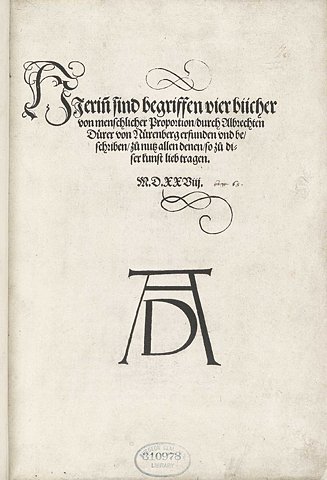 Hierin̄ sind begriffen vier bücher
von menschlicher Proportion / durch Albrechten
Dürer von Nürenberg erfunden vnd be/
schriben / zů nutz allen denen / so zů di-
ser kunst lieb tragen.
M.D.XXViij.
AD
310978
LIBRARY